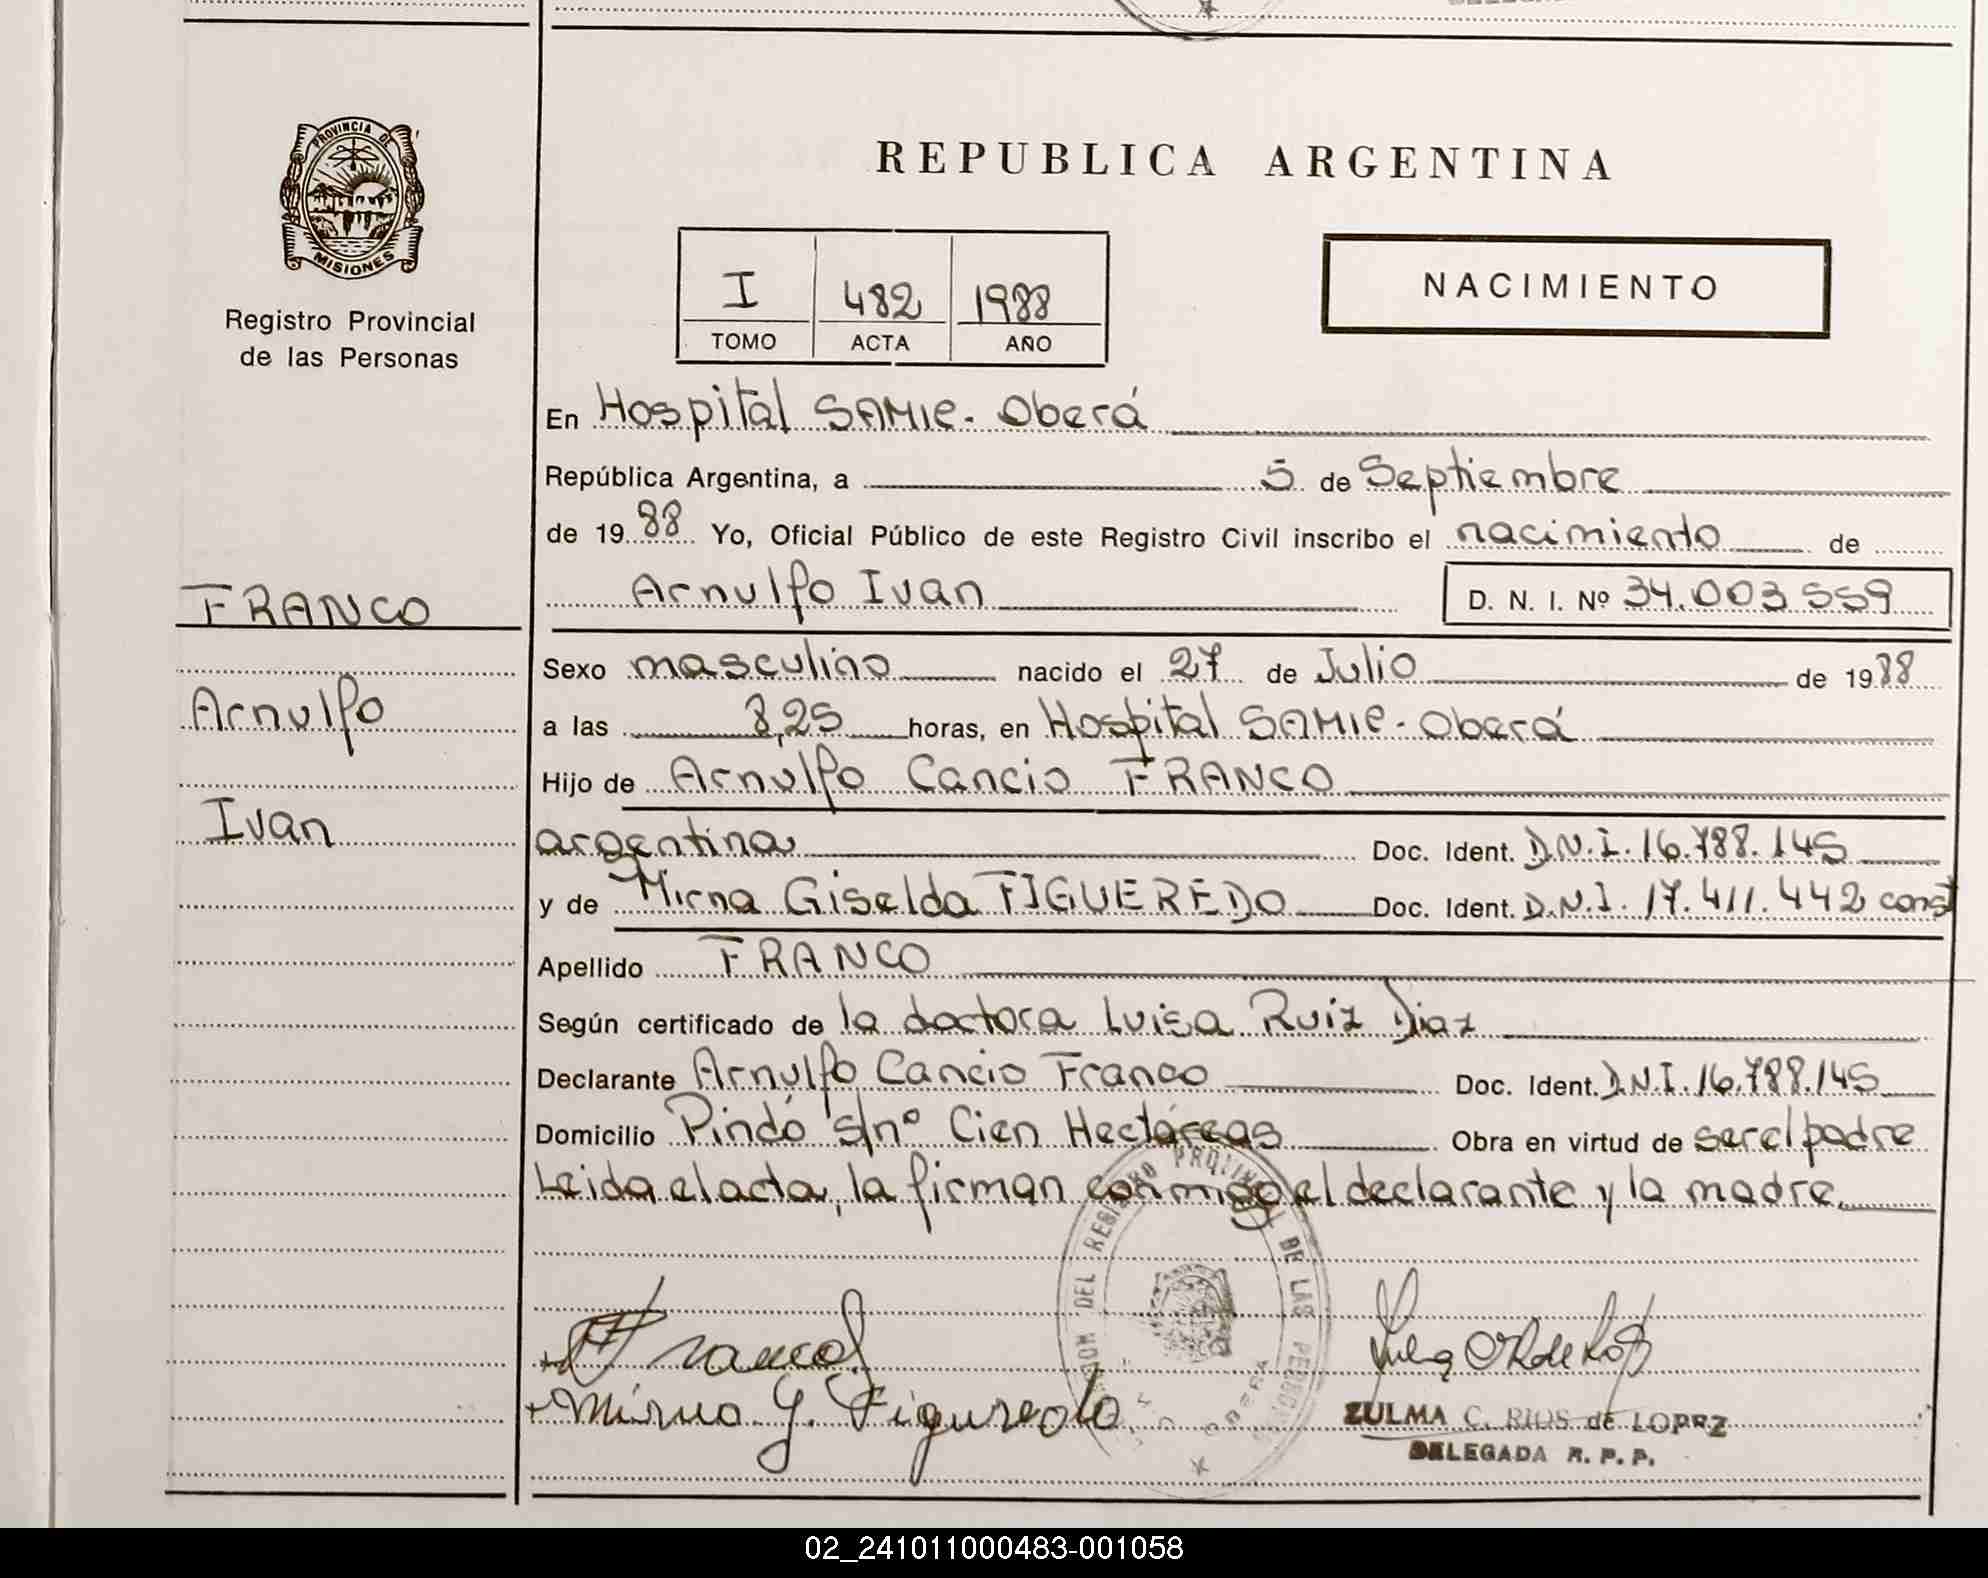 PROVINCIA DE
MISIONES
Registro Provincial
de las Personas
FRANCO
Arnulfo
Ivan
REPUBLICA ARGENTINA
I 482 1988
TOMO ACTA AÑO
NACIMIENTO
En Hospital SAMIC - Oberá
República Argentina, a 5 de Septiembre
de 1988 Yo, Oficial Público de este Registro Civil inscribo el nacimiento de
Arnulfo Ivan D. N. I. Nº 34.003.559
Sexo masculino nacido el 27 de Julio de 1988
a las 8,25 horas, en Hospital SAMIC - Oberá
Hijo de Arnulfo Cancio FRANCO
argentina Doc. Ident. D.N.I. 16.788.145
y de Mirna Giselda FIGUEREDO Doc. Ident. D.N.I. 17.411.442 const
Apellido FRANCO
Según certificado de la doctora Luisa Ruiz Diaz
Declarante Arnulfo Cancio Franco Doc. Ident. D.N.I. 16.788.145
Domicilio Pindó s/nº Cien Hectáreas Obra en virtud de ser el padre
Leida el acta, la firman conmigo el declarante y la madre.
DEL REGISTRO PROVINCIAL DE LAS PERSONAS
OBERA
Franco
Mirna G. Figueredo
ZULMA C. RIOS de LOPEZ
DELEGADA R. P. P.
02_241011000483-001058